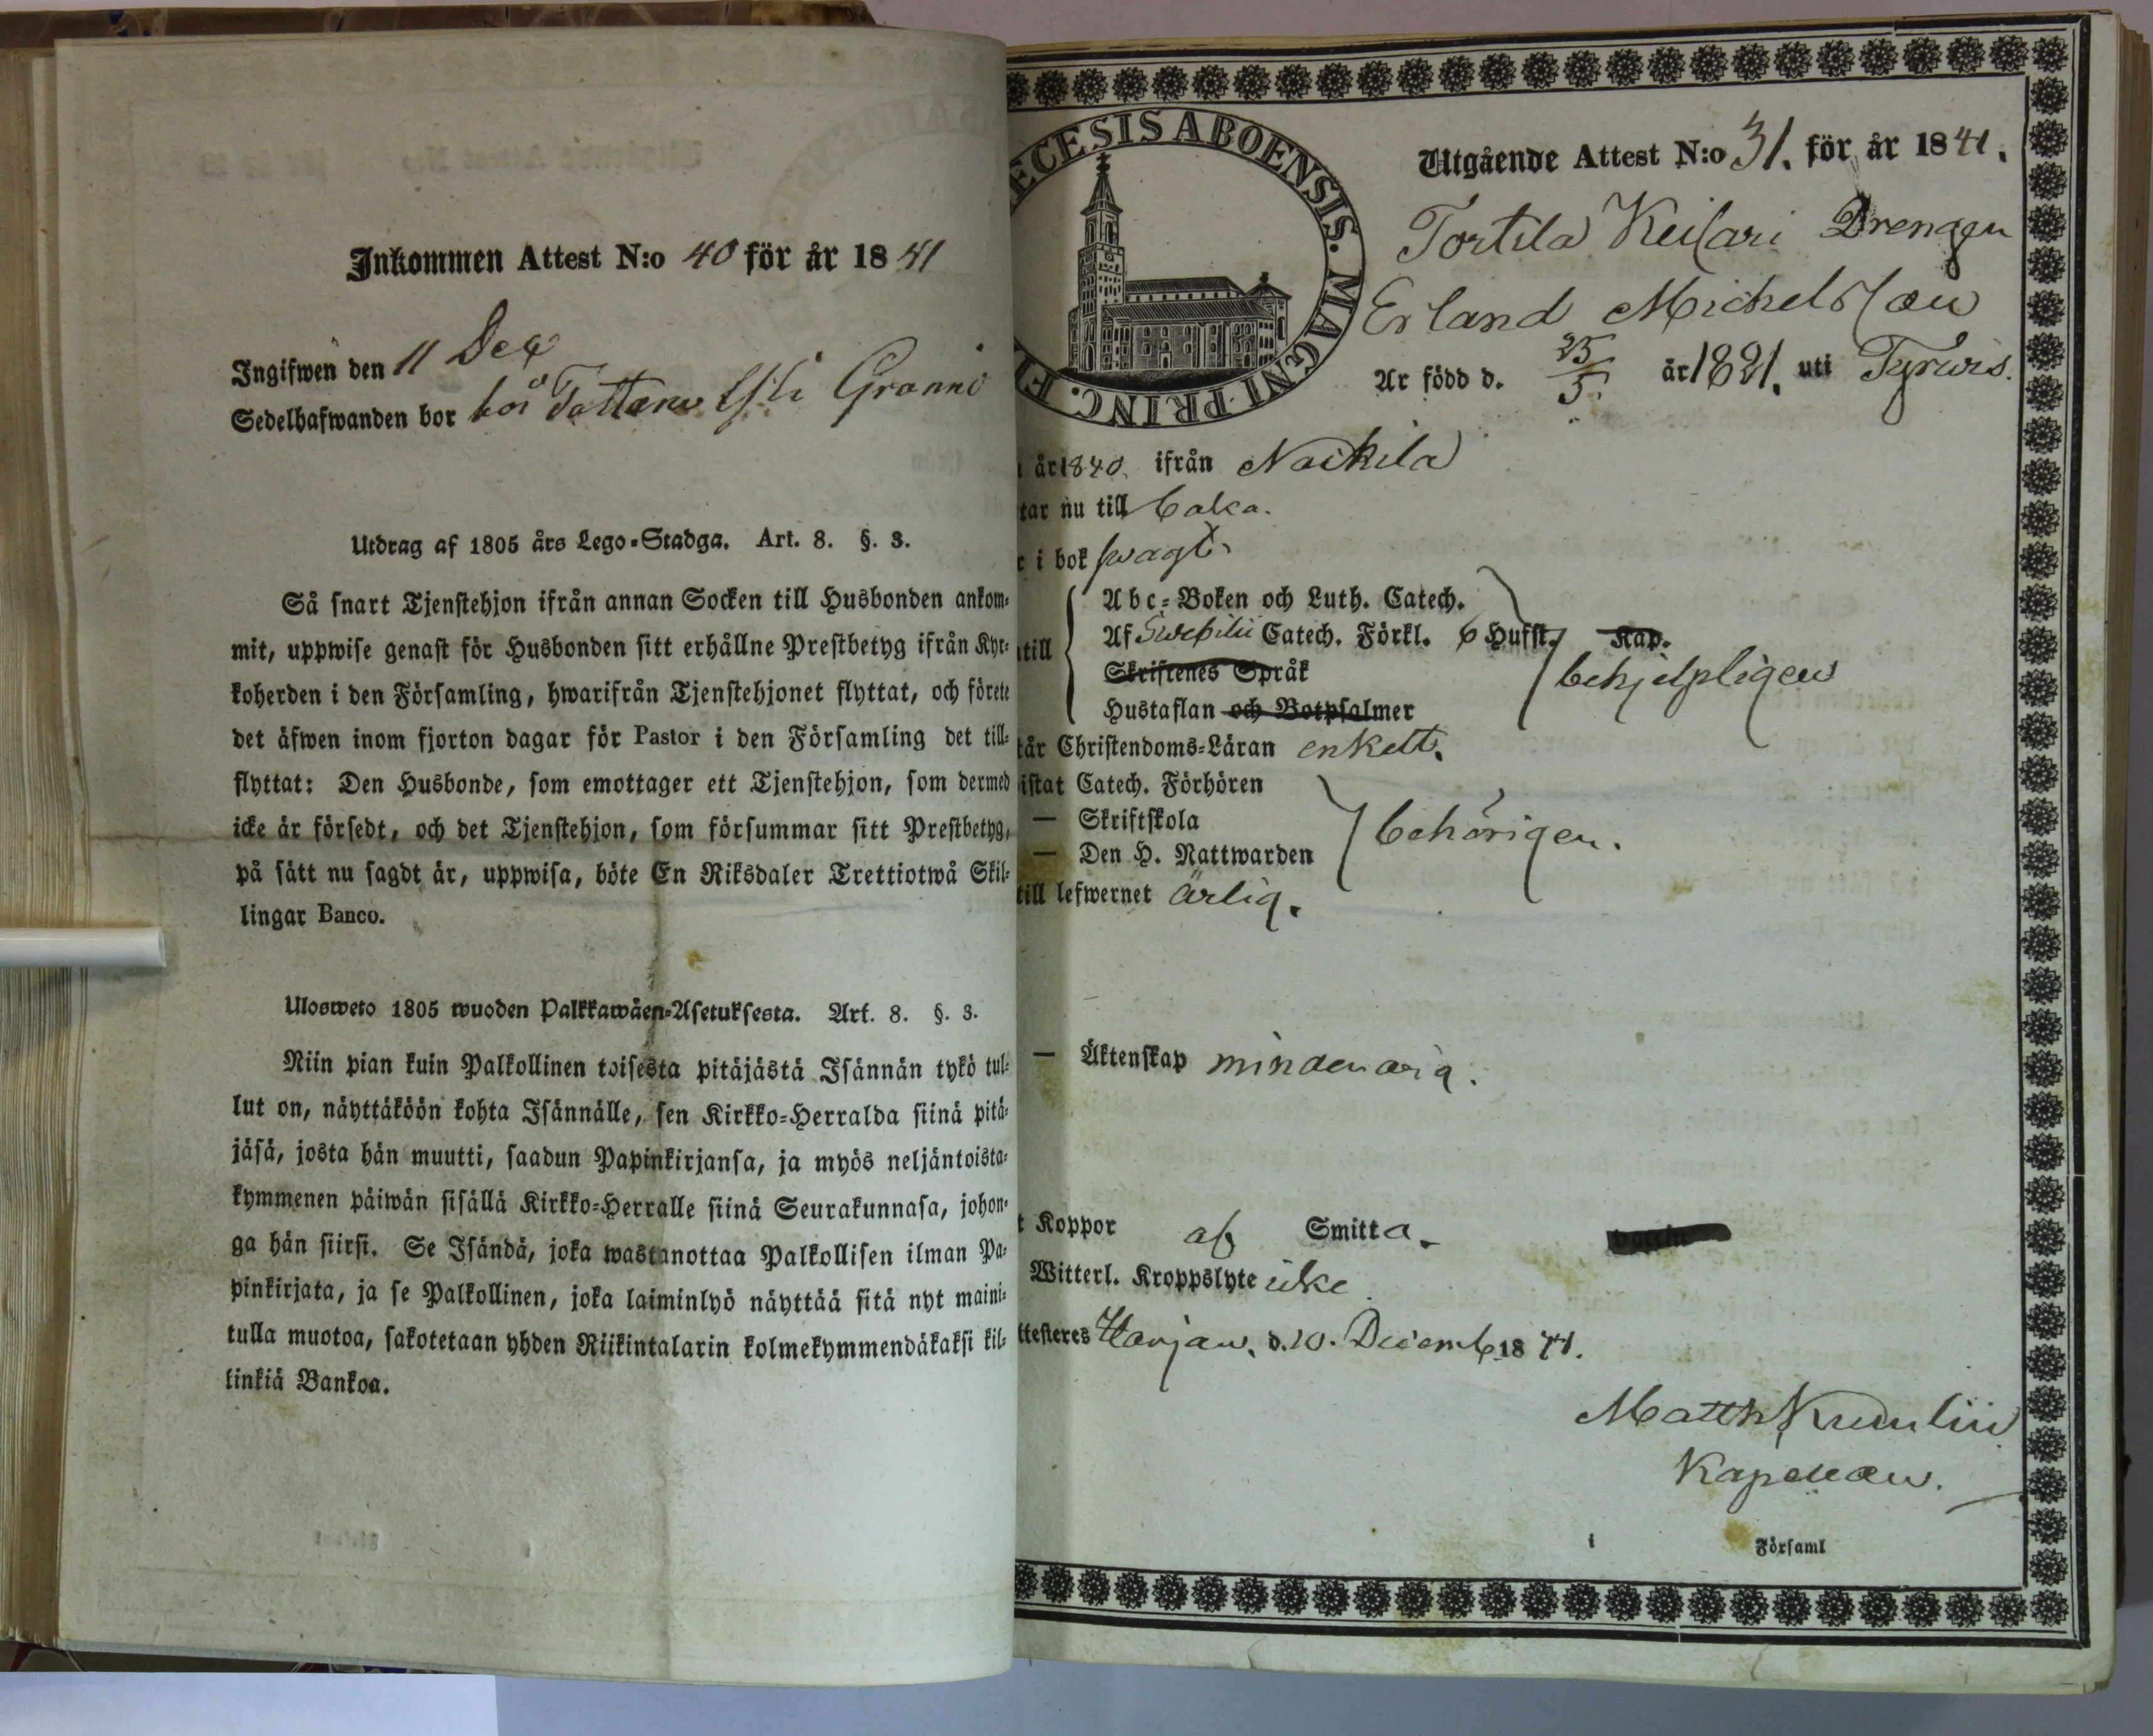 Inkommen Attest N:o 40 för år 1841
Ingifwen den 11 Dec
Sedelhafwanden bor hos
Utdrag af 1805 års Lego-Stadga. Art. 8. §. 3.
Så snart Tjenstehjon ifrån annan Socken till Husbonden ankom-
mit, uppwise genast för Husbonden sitt erhållne Prestbetyg ifrån Kyr-
koherden i den Församling, hwarifrån Tjenstehjonet flyttat, och förete
det äfwen inom fjorton dagar för Pastor i den Församling det till-
flyttat: Den Husbonde, som emottager ett Tjenstehjon, som dermed
icke är försedt, och det Tjenstehjon, som försummar sitt Prestbetyg,
på sätt nu sagdt är, uppwisa, böte En Riksdaler Trettiotwå Skil-
lingar Banco.
Ulosweto 1805 wuoden Palkkawäen-Asetuksesta. Art. 8. §. 3.
Niin pian kuin Palkollinen toisesta pitäjästä Isännän tykö tul-
lut on, näyttäköön kohta Isännälle, sen Kirkko-Herralda siinä pitä-
jäsä, josta hän muutti, saadun Papinkirjansa, ja myös neljäntoista-
kymmenen päiwän sisällä Kirkko-Herralle siinä Seurakunnasa, johon-
ga hän siirsi. Se Isändä, joka wastanottaa Palkollisen ilman Pa-
pinkirjata, ja se Palkollinen, joka laiminlyö näyttää sitä nyt maini-
tulla muotoa, sakotetaan yhden Riikintalarin kolmekymmendäkaksi kil-
linkiä Bankoa.
ECESIS ABOENSIS. MAGNI PRINC. F
Utgående Attest N:o 31. för år 1841.
Tortila Keisari Drengen
Erland Michelsson
Är född d. 25/5 år 1821. uti Tyrwis.
år 1840. ifrån Nackila
tar nu till
r i bok swagt
till
Abc-Boken och Luth. Catech.
Af Swebilii Catech. Förkl. 6 Hufst. Kap.
Skriftenes Språk
Hustaflan och Botpsalmer
behjelpligen
tår Christendoms-Läran enkelt.
istat Catech. Förhören
— Skriftskola
— Den H. Nattwarden
behörigen.
till lefwernet ärlig.
— Äktenskap
t Koppor af Smitta.
Witterl. Kroppslyte icke
ttesteres Harjaw. d. 10. Decemb. 1841.
Matth Kumlin
Kapellan.
i Församl